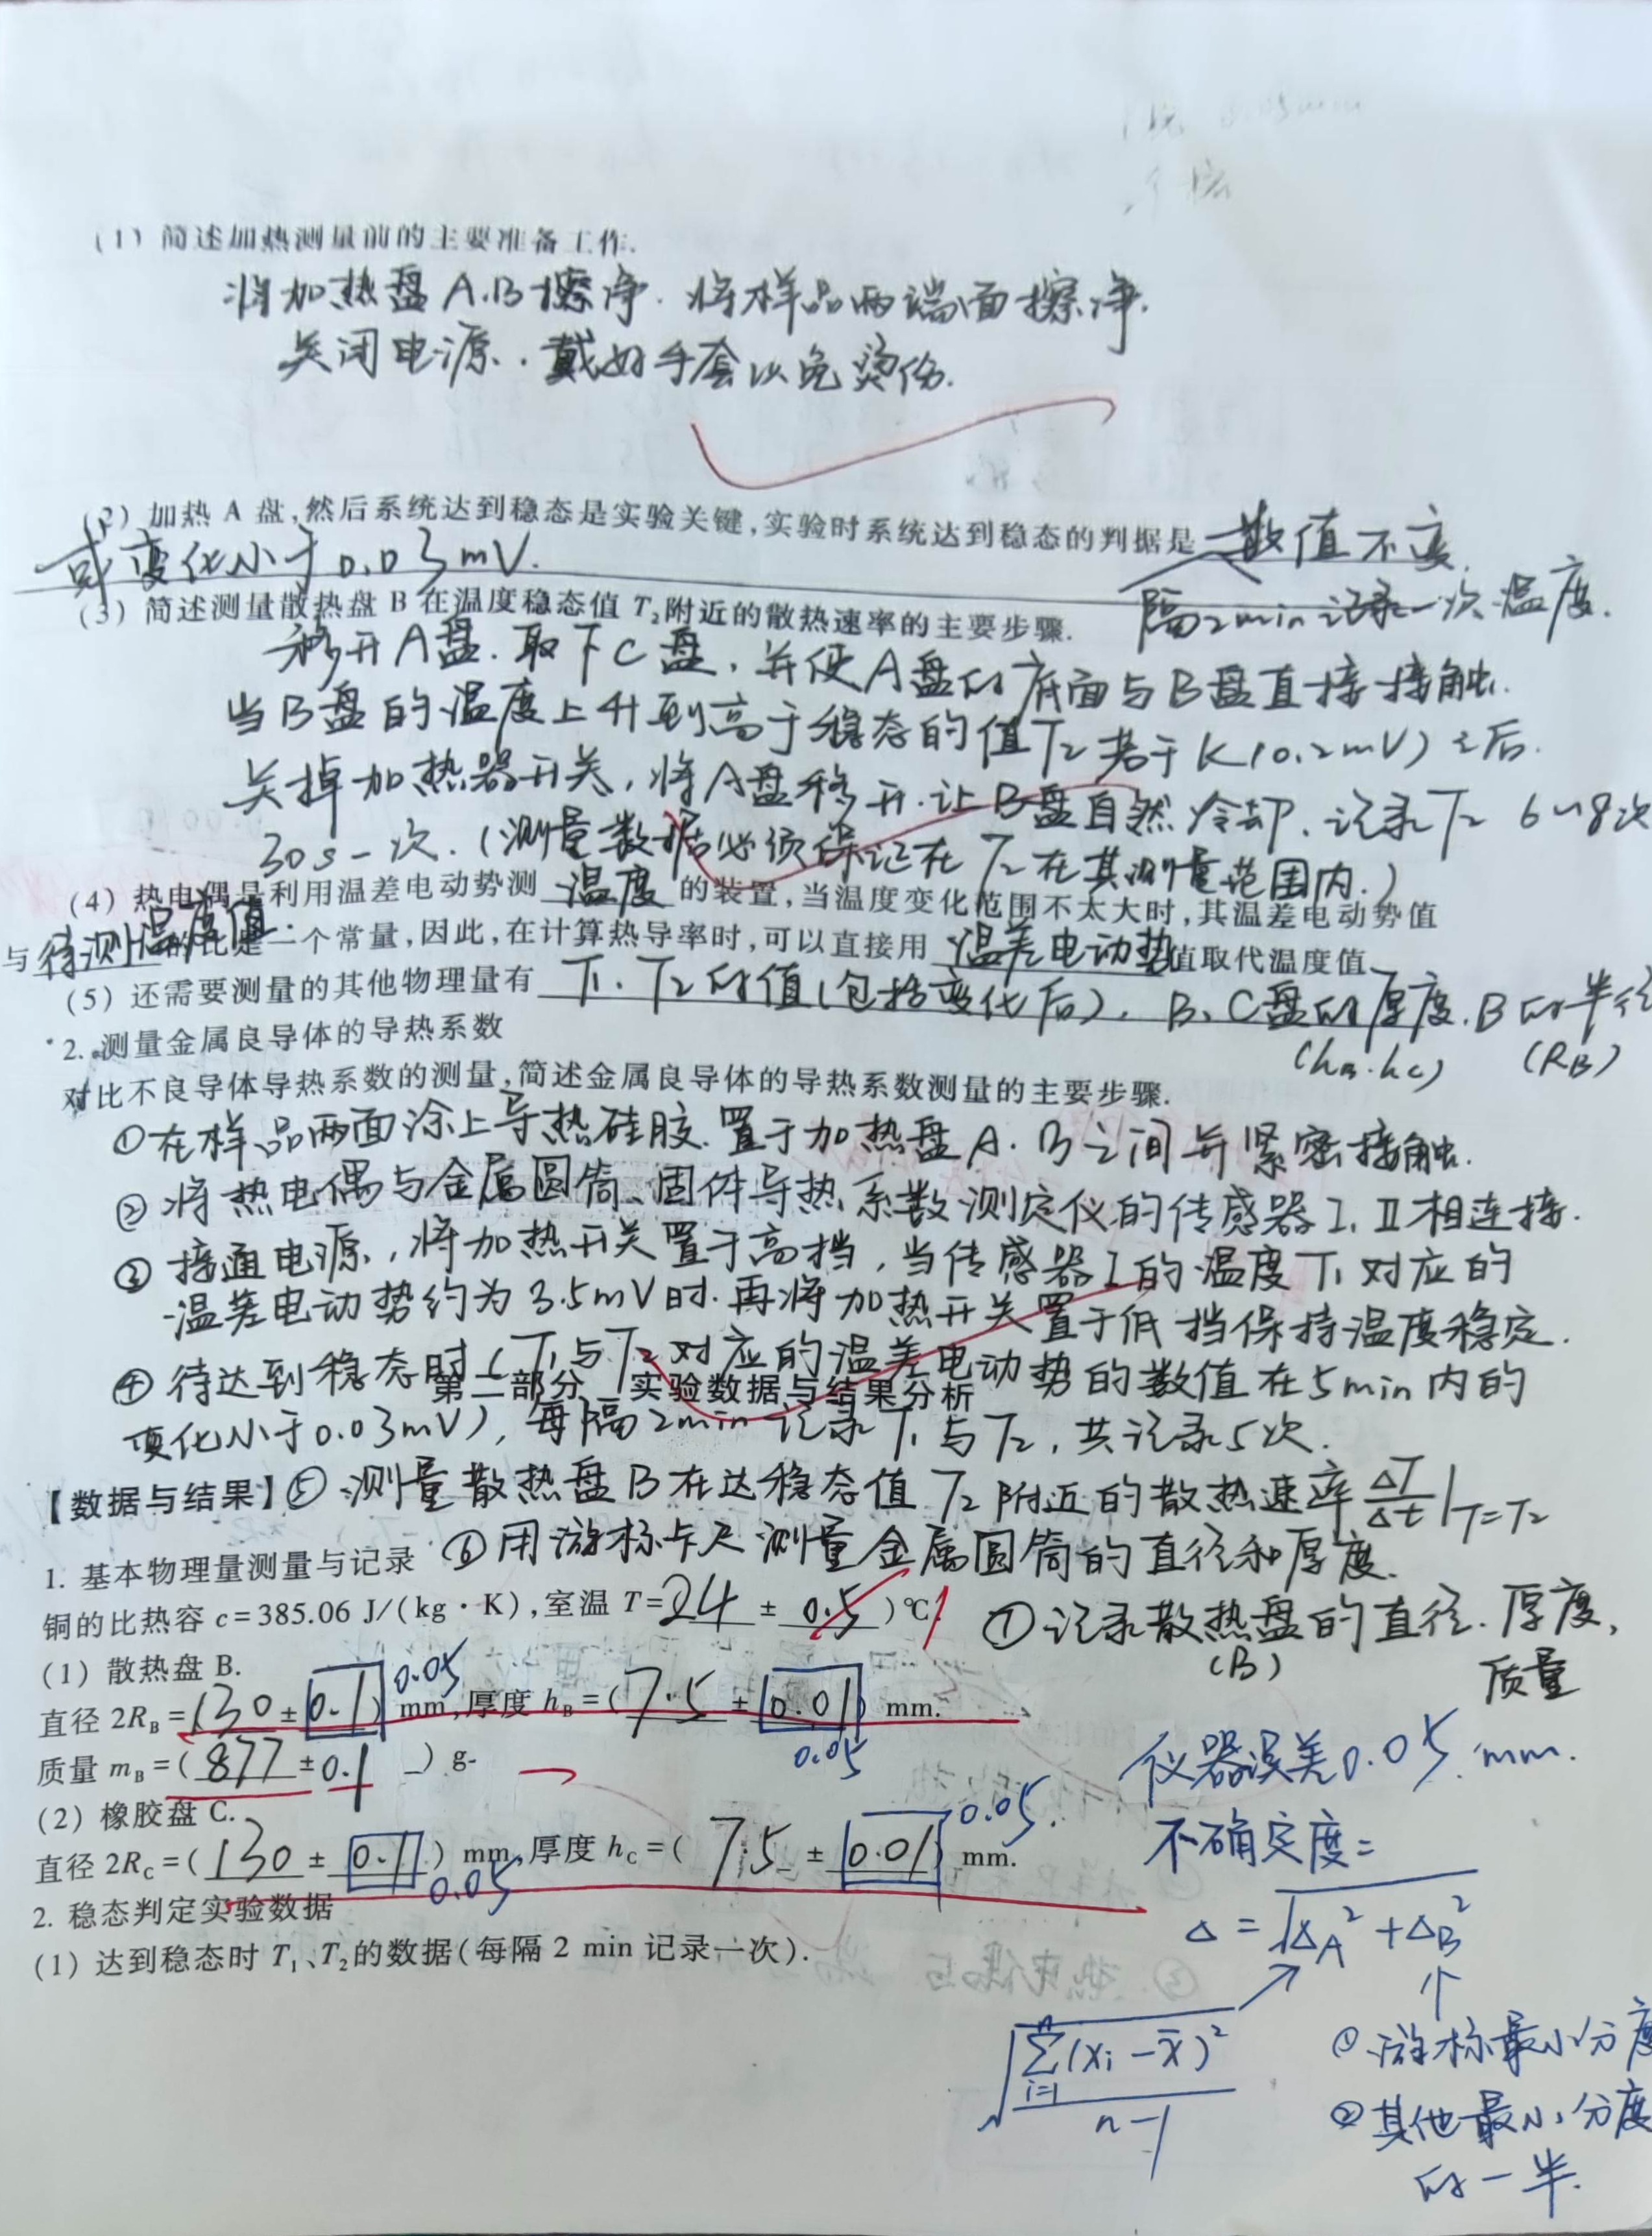 (1) 简述加热测量前的主要准备工作.
将加热盘A.B擦净.将样品两端面擦净.
关闭电源.戴好手套以免烫伤.
(2) 加热 A 盘,然后系统达到稳态是实验关键,实验时系统达到稳态的判据是 数值不变
或变化小于0.03mV.
隔2min记录一次温度.
(3) 简述测量散热盘 B 在温度稳态值 T₂附近的散热速率的主要步骤.
移开A盘.取下C盘,并使A盘的底面与B盘直接接触.
当B盘的温度上升到高于稳态的值T₂若干K(0.2mV)之后.
关掉加热器开关,将A盘移开.让B盘自然冷却.记录T₂ 6~8次
30s一次.(测量数据必须保证在T₂在其测量范围内.)
(4) 热电偶是利用温差电动势测 温度 的装置,当温度变化范围不太大时,其温差电动势值
与 待测温度值 的比是一个常量,因此,在计算热导率时,可以直接用 温差电动势 值取代温度值.
(5) 还需要测量的其他物理量有 T₁、T₂的值(包括变化后).B、C盘的厚度.B的半径
(hB.hC) (RB)
2. 测量金属良导体的导热系数
对比不良导体导热系数的测量,简述金属良导体的导热系数测量的主要步骤.
①在样品两面涂上导热硅胶.置于加热盘A.B之间并紧密接触.
②将热电偶与金属圆筒、固体导热系数测定仪的传感器I、II相连接.
③接通电源,将加热开关置于高挡,当传感器I的温度T₁对应的
温差电动势约为3.5mV时.再将加热开关置于低挡保持温度稳定.
④待达到稳态时(T₁与T₂对应的温差电动势的数值在5min内的
第二部分 实验数据与结果分析
变化小于0.03mV),每隔2min记录T₁与T₂,共记录5次.
【数据与结果】⑤测量散热盘B在达稳态值T₂附近的散热速率ΔT/Δt|T=T₂
1. 基本物理量测量与记录 ⑥用游标卡尺测量金属圆筒的直径和厚度.
铜的比热容 c=385.06 J/(kg·K),室温 T=24 ± 0.5 )℃. ⑦记录散热盘的直径.厚度,
(B) 质量
(1) 散热盘 B.
0.05
直径 2RB=(130±0.1) mm,厚度 hB=(7.5±0.01) mm.
0.05
质量 mB=(877±0.1 ) g.
仪器误差0.05 mm.
(2) 橡胶盘 C.
0.05
不确定度=
直径 2RC=(130 ± 0.1) mm,厚度 hC=(7.5 ± 0.01) mm.
0.05
2. 稳态判定实验数据
Δ=√ΔA²+ΔB²
(1) 达到稳态时 T₁、T₂的数据(每隔 2 min 记录一次).
√∑(xᵢ-x̄)²
i=1
n-1
①游标最小分度
②其他最小分度
的一半.